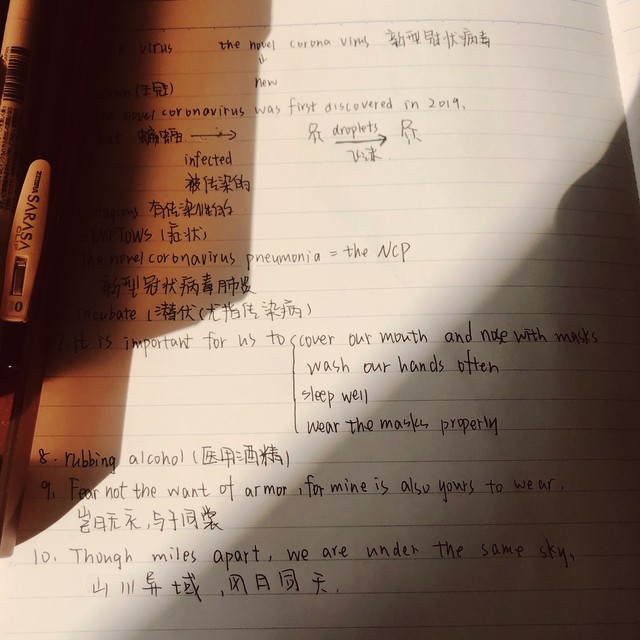 virus the novel corona virus 新型冠状病毒
new
(王冠)
novel coronavirus was first discovered in 2019.
蝙蝠 → 尔 droplets → 尔
飞沫
infected
被传染的
有传染性的
(症状)
the novel coronavirus pneumonia = the NCP
新型冠状病毒肺炎
incubate (潜伏(尤指传染病)
It is important for us to cover our mouth and nose with masks
wash our hands often
sleep well
wear the masks properly
8. rubbing alcohol (医用酒精)
9. Fear not the want of armor, for mine is also yours to wear.
岂曰无衣,与子同裳
10. Though miles apart, we are under the same sky.
山川异域,风月同天.
ZEBRA SARASA